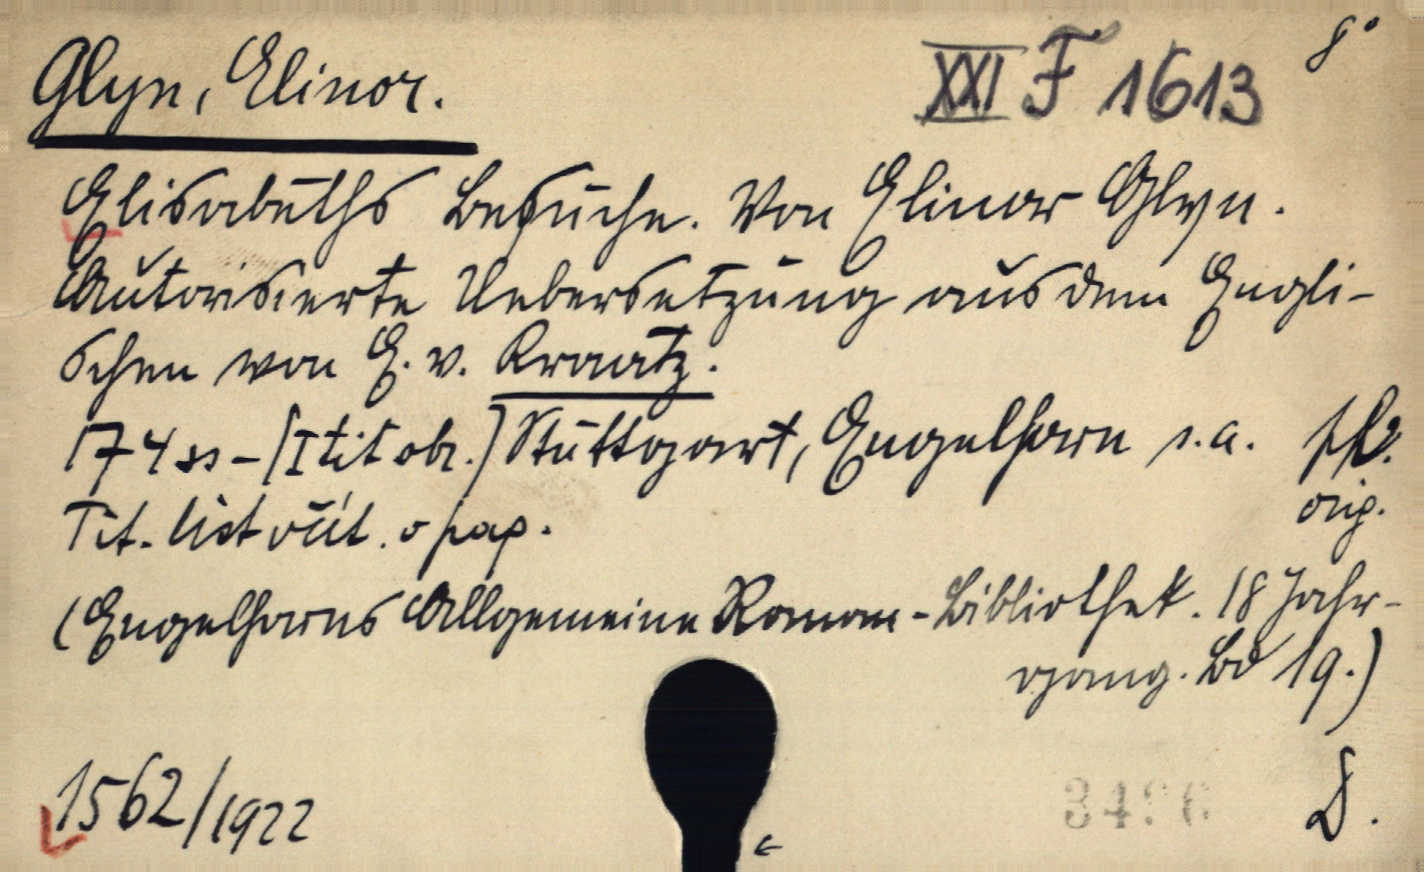 Glyn, Elinor.
XXI F 1613
8°
Elisabeths Besuche. Von Elinor Glyn.
Autorisierte Uebersetzung aus dem Engli-
schen von E. v. Kraatz.
174 ss - [I tit obr.] Stuttgart, Engelhorn s.a.
orig.
Tit. list . o pap.
(Engelhorns Allgemeine Roman-Bibliothek. 18 Jahr-
gang. Bd 19.)
1562/1922
D.